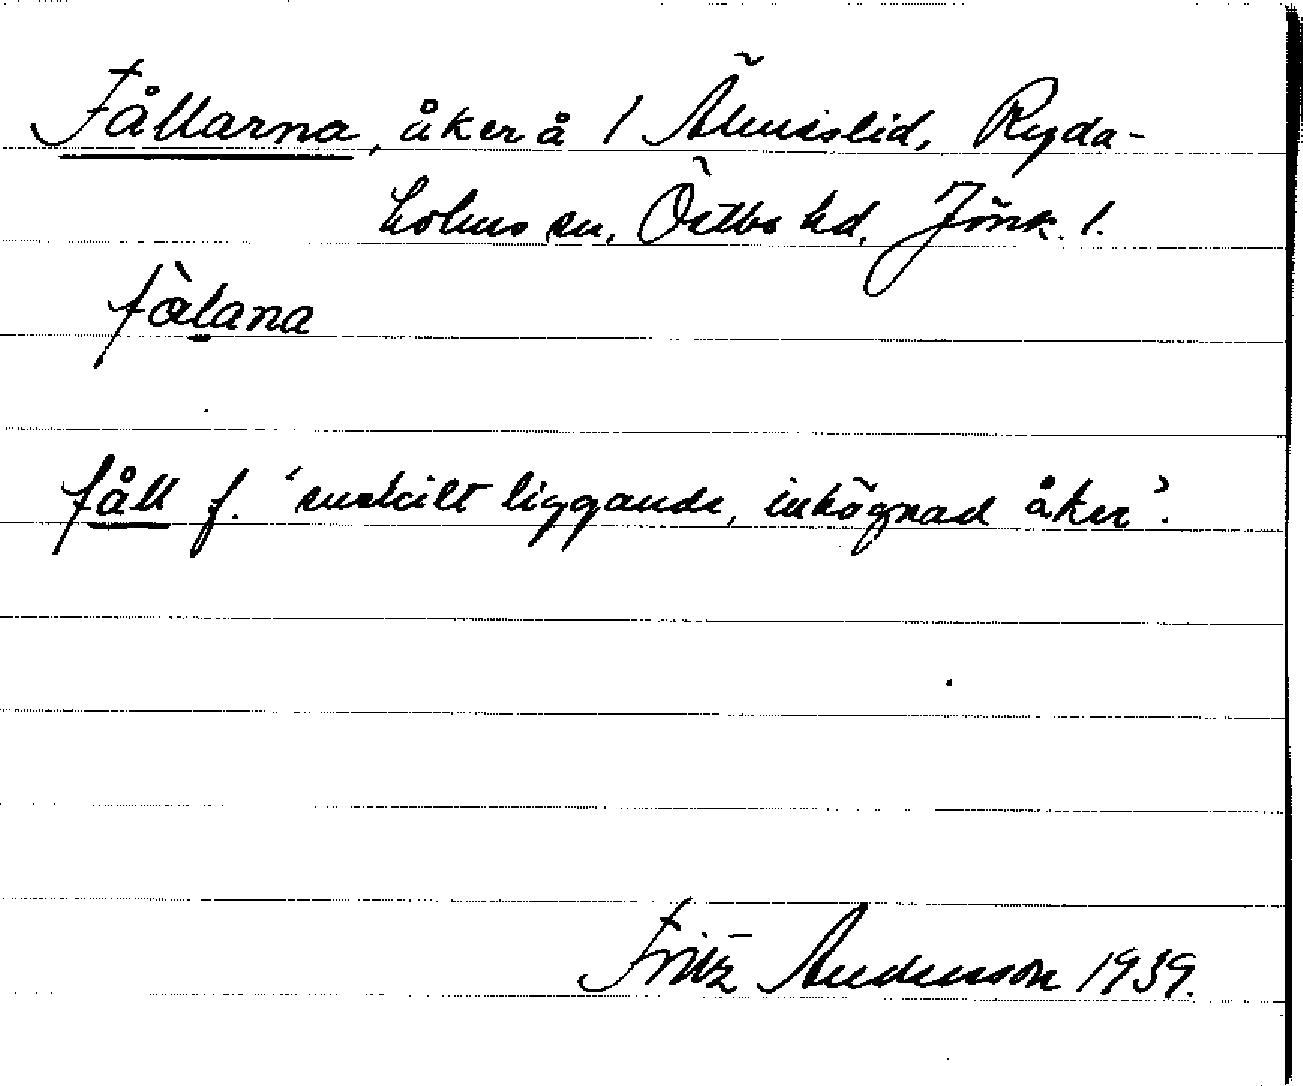 Fållarna, åker å 1 Älmislid, Ryda-
holms sn, Östbo hd, Jönk. l.
fàlana
fåll f. 'enskilt liggande, inhägnad åker'.
Fritz Anderson 1939.